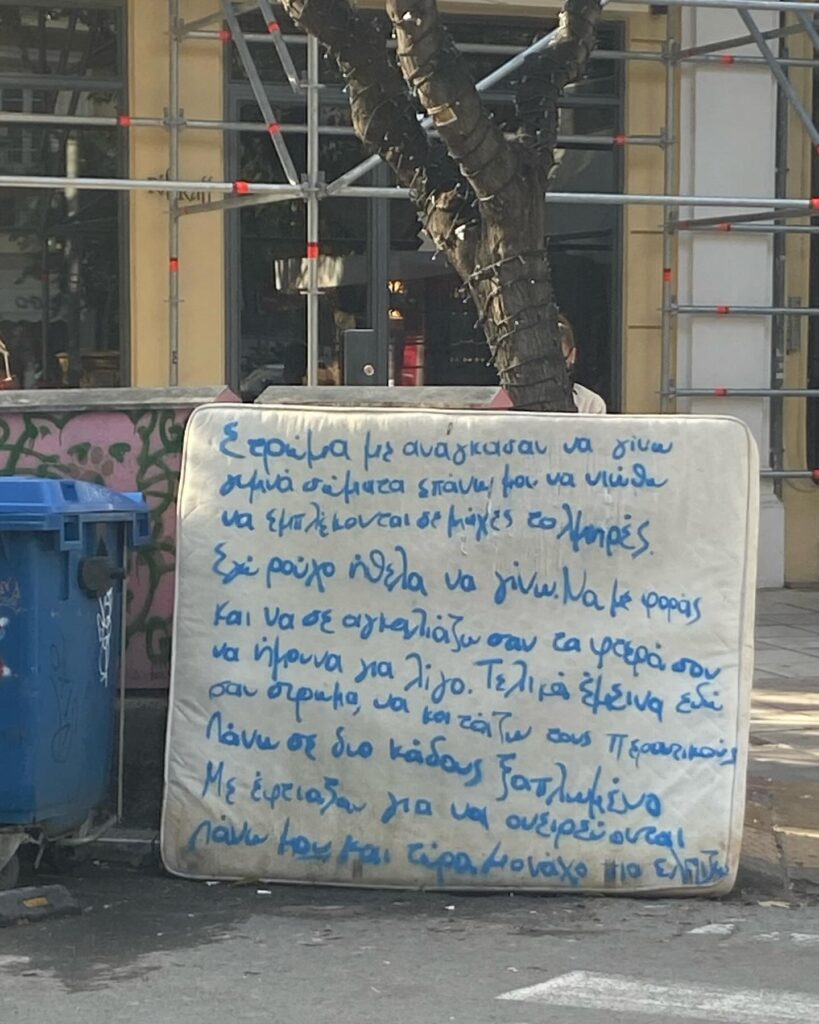 Στρώμα με ανάγκασαν να γίνω
γυμνά σώματα επάνω μου να νιώθω
να εμπλέκονται σε μάχες τολμηρές.
Εγώ ρούχο ήθελα να γίνω. Να με φοράς
και να σε αγκαλιάζω σαν τα φτερά σου
να ήμουνα για λίγο. Τελικά έμεινα εδώ
σαν στρώμα, να κοιτάζω τους περαστικούς
πάνω σε δυο κάδους ξαπλωμένο
Με έφτιαξαν για να ονειρεύονται
πάνω μου και τώρα μονάχο μου ελπίζω